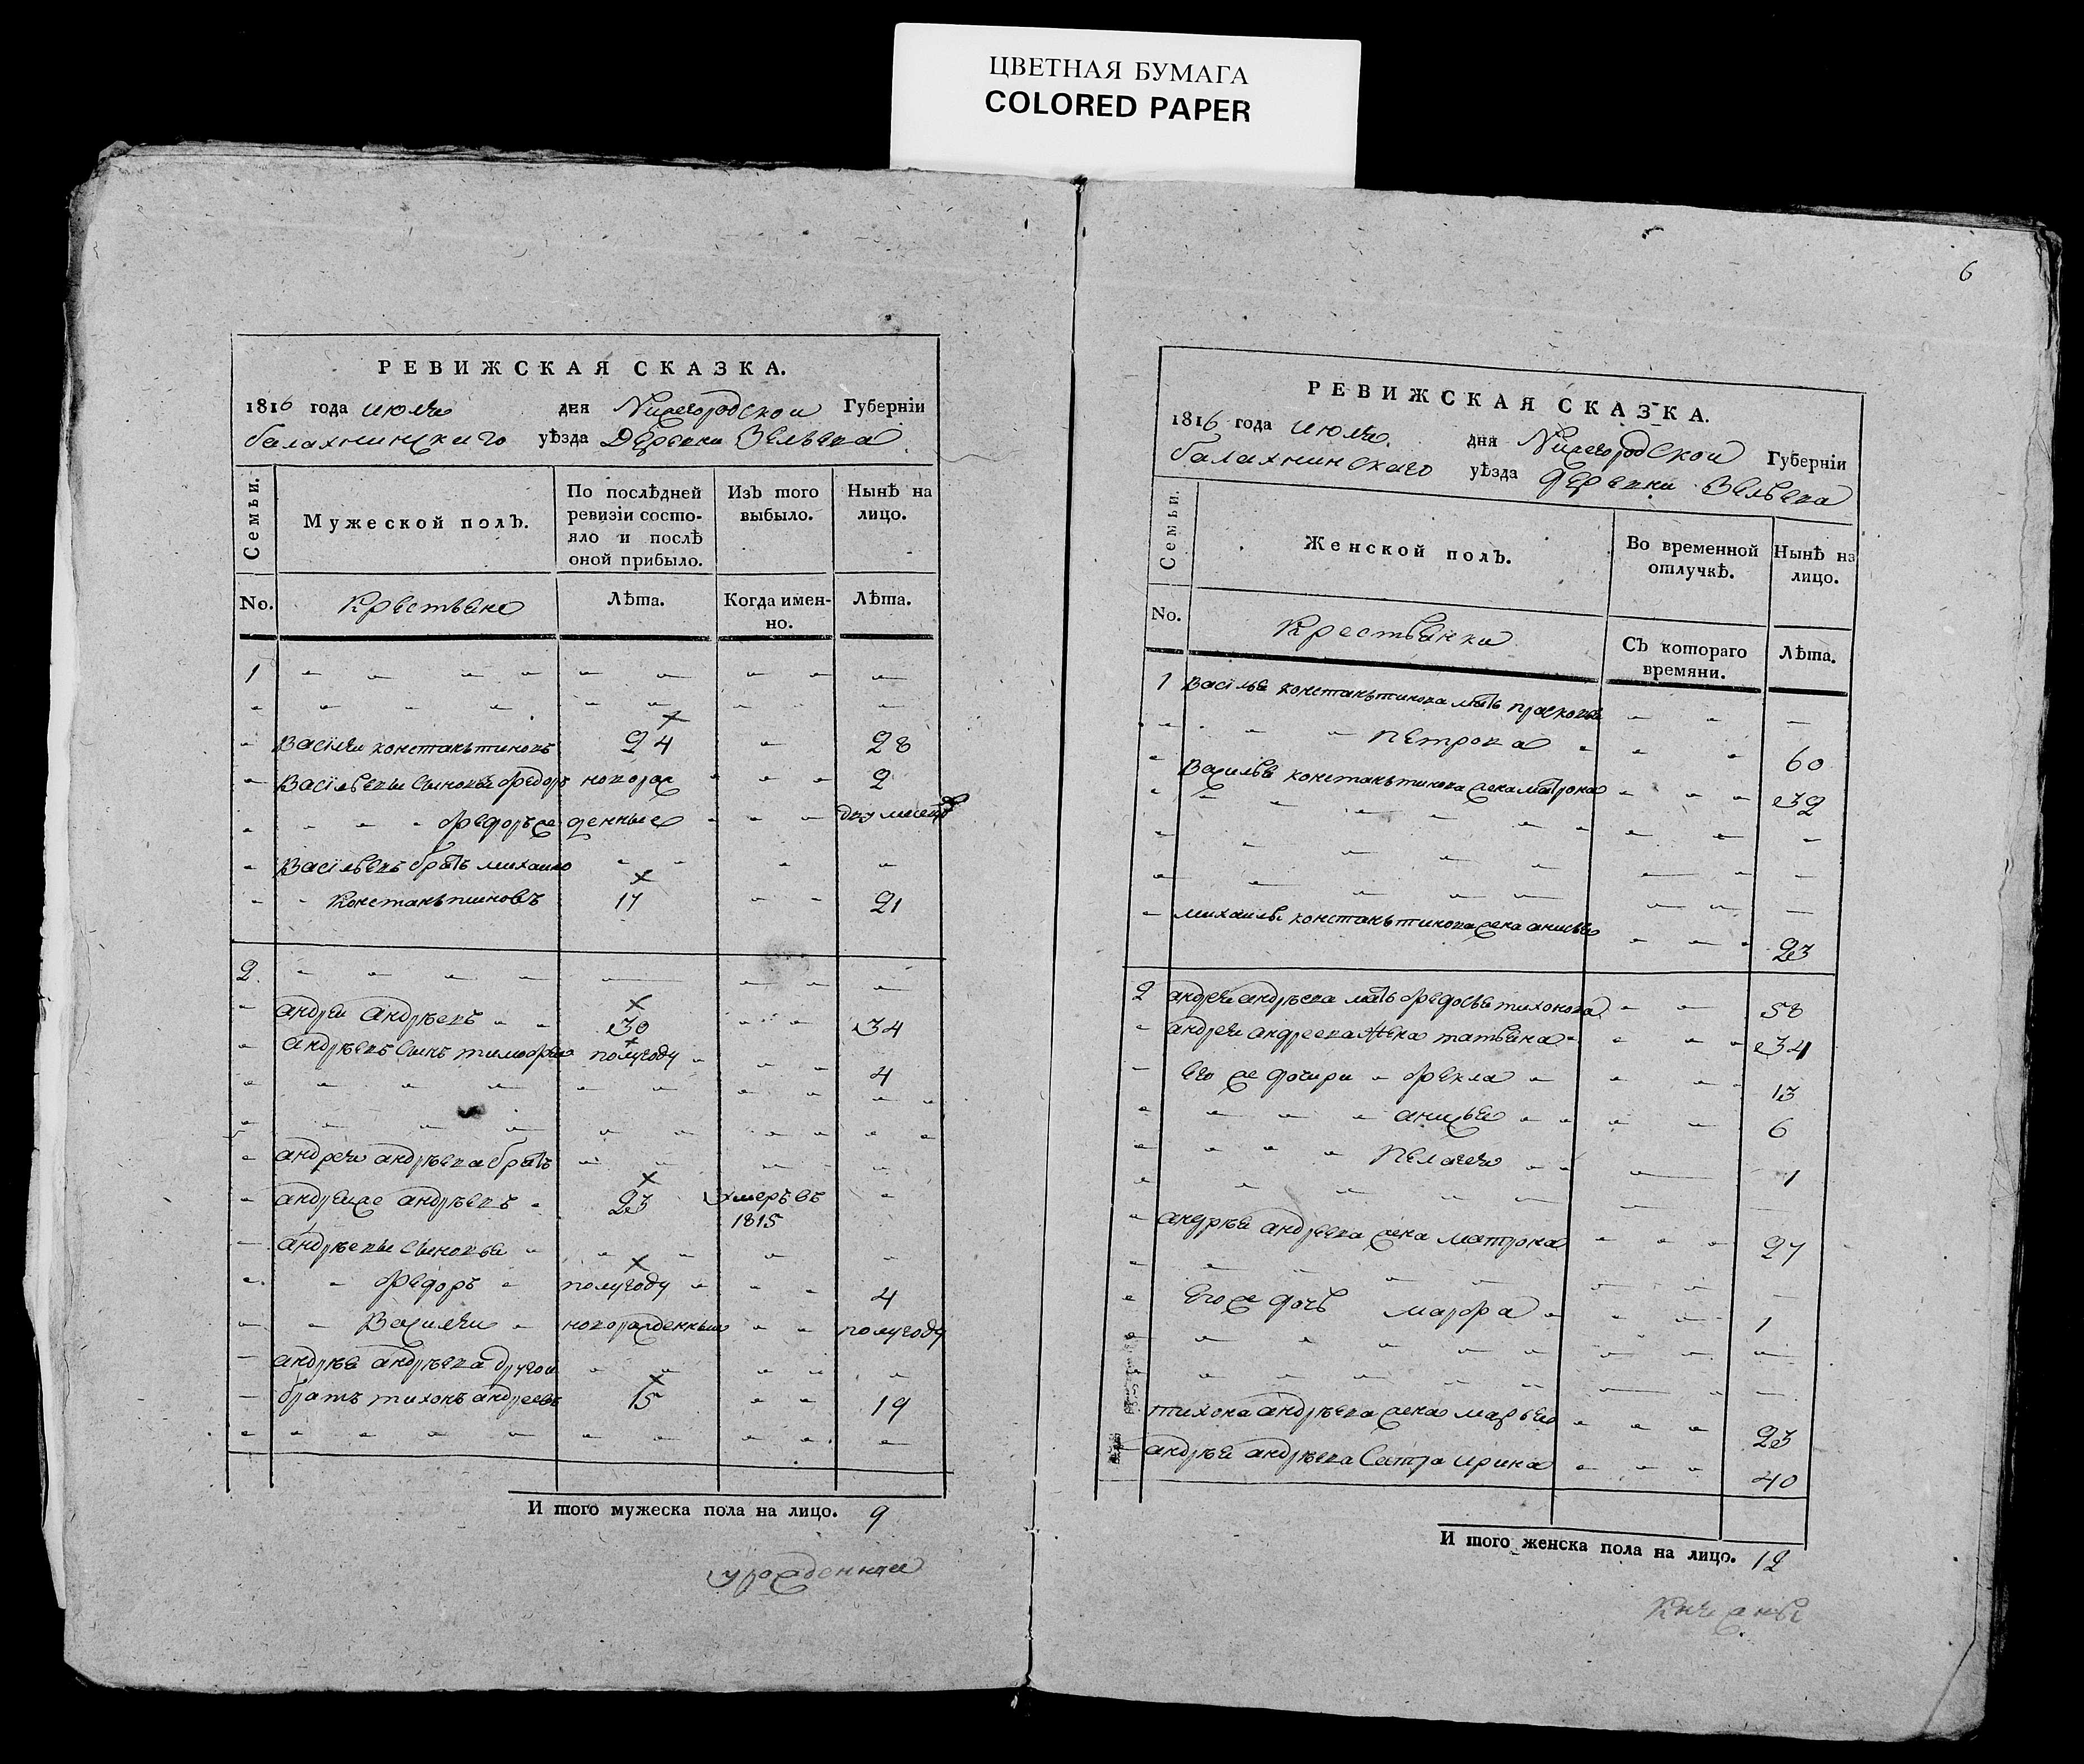 ЦВЕТНАЯ БУМАГА
COLORED PAPER
РЕВИЖСКАЯ СКАЗКА.
1816 года июля дня Нижегородской Губерніи
балахнинскаго уѣзда Деревни
Семьи.
Мужеской полъ.
По послѣдней ревизіи состо-
яло и послѣ оной прибыло.
Изъ того выбыло.
Нынѣ на лицо.
No.
Крестьяне
Лѣта.
Когда имен-
но.
Лѣта.
1
Василеи константиновъ 24 28
Васильевы сыновья федоръ новорож 2
федоръ же денные два месеца
Васильевъ братъ михаило
Константиновъ 17 21
2
андреи андрѣевъ 30 34
андрѣевъ сынъ тимофеи полугоду 4
андреея андрѣева братъ
андреиже андрѣевъ 23 умеръ въ 1815
андрѣевы сыновья
федоръ полугоду 4
Василеи новорожденныи полугоду
андрѣя андрѣева другои
братъ тихонъ андреевъ 15 19
И того мужеска пола на лицо. 9
6
РЕВИЖСКАЯ СКАЗКА.
1816 года июля дня Нижегородской Губерніи
балахнинскаго уѣзда деревни
Семьи.
Женской полъ.
Во временной отлучкѣ.
Нынѣ на лицо.
No.
Крестьянки
Съ котораго времяни.
Лѣта.
1 Василья константинова мать прасковья
Петрова 60
Василья константинова жена матрона 32
михаила константинова жена анисья 23
2 андрея андрѣева мать федосья тихонова 58
андрея андреева жена татьяна 34
Его же дочери фекла 13
анисья 6
Пелагея 1
андрѣя андреева жена матрона 27
Его же дочь марфа 1
тихона андрѣева жена марья 23
андрѣя андрѣева Сестра ирина 40
И того женска пола на лицо. 12